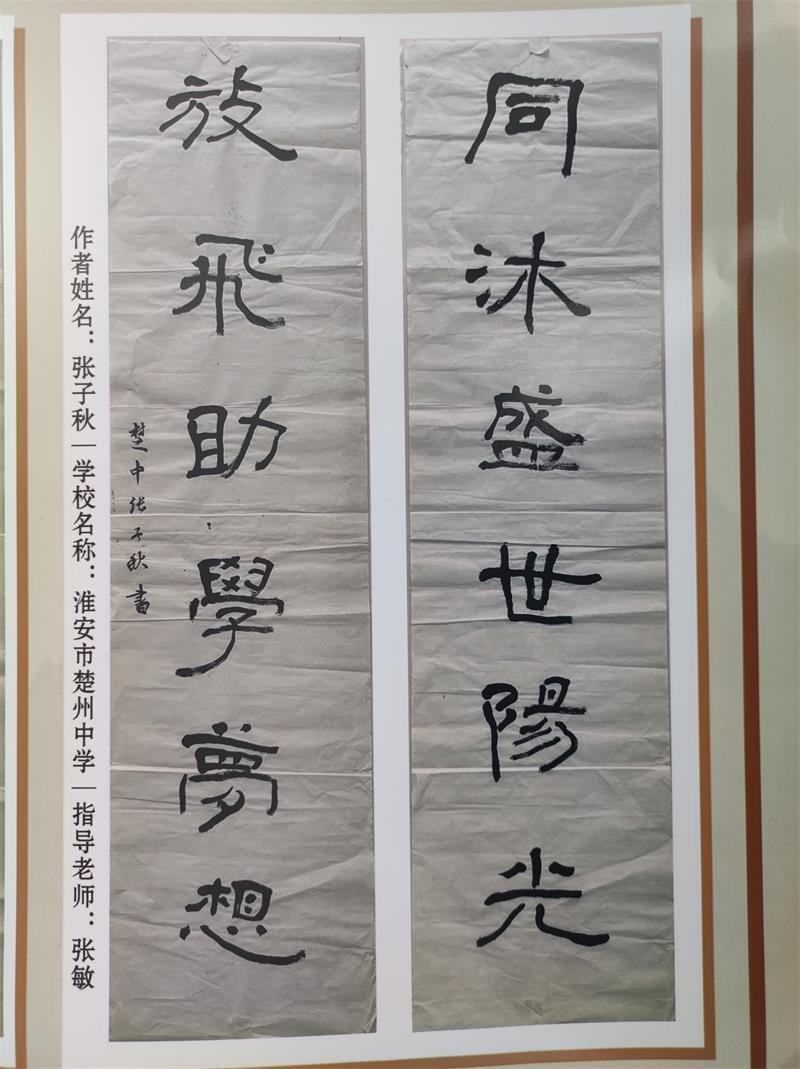 同沐盛世陽光
放飛助學夢想
楚中张子秋書
作者姓名：张子秋 | 学校名称：淮安市楚州中学 | 指导老师：张敏